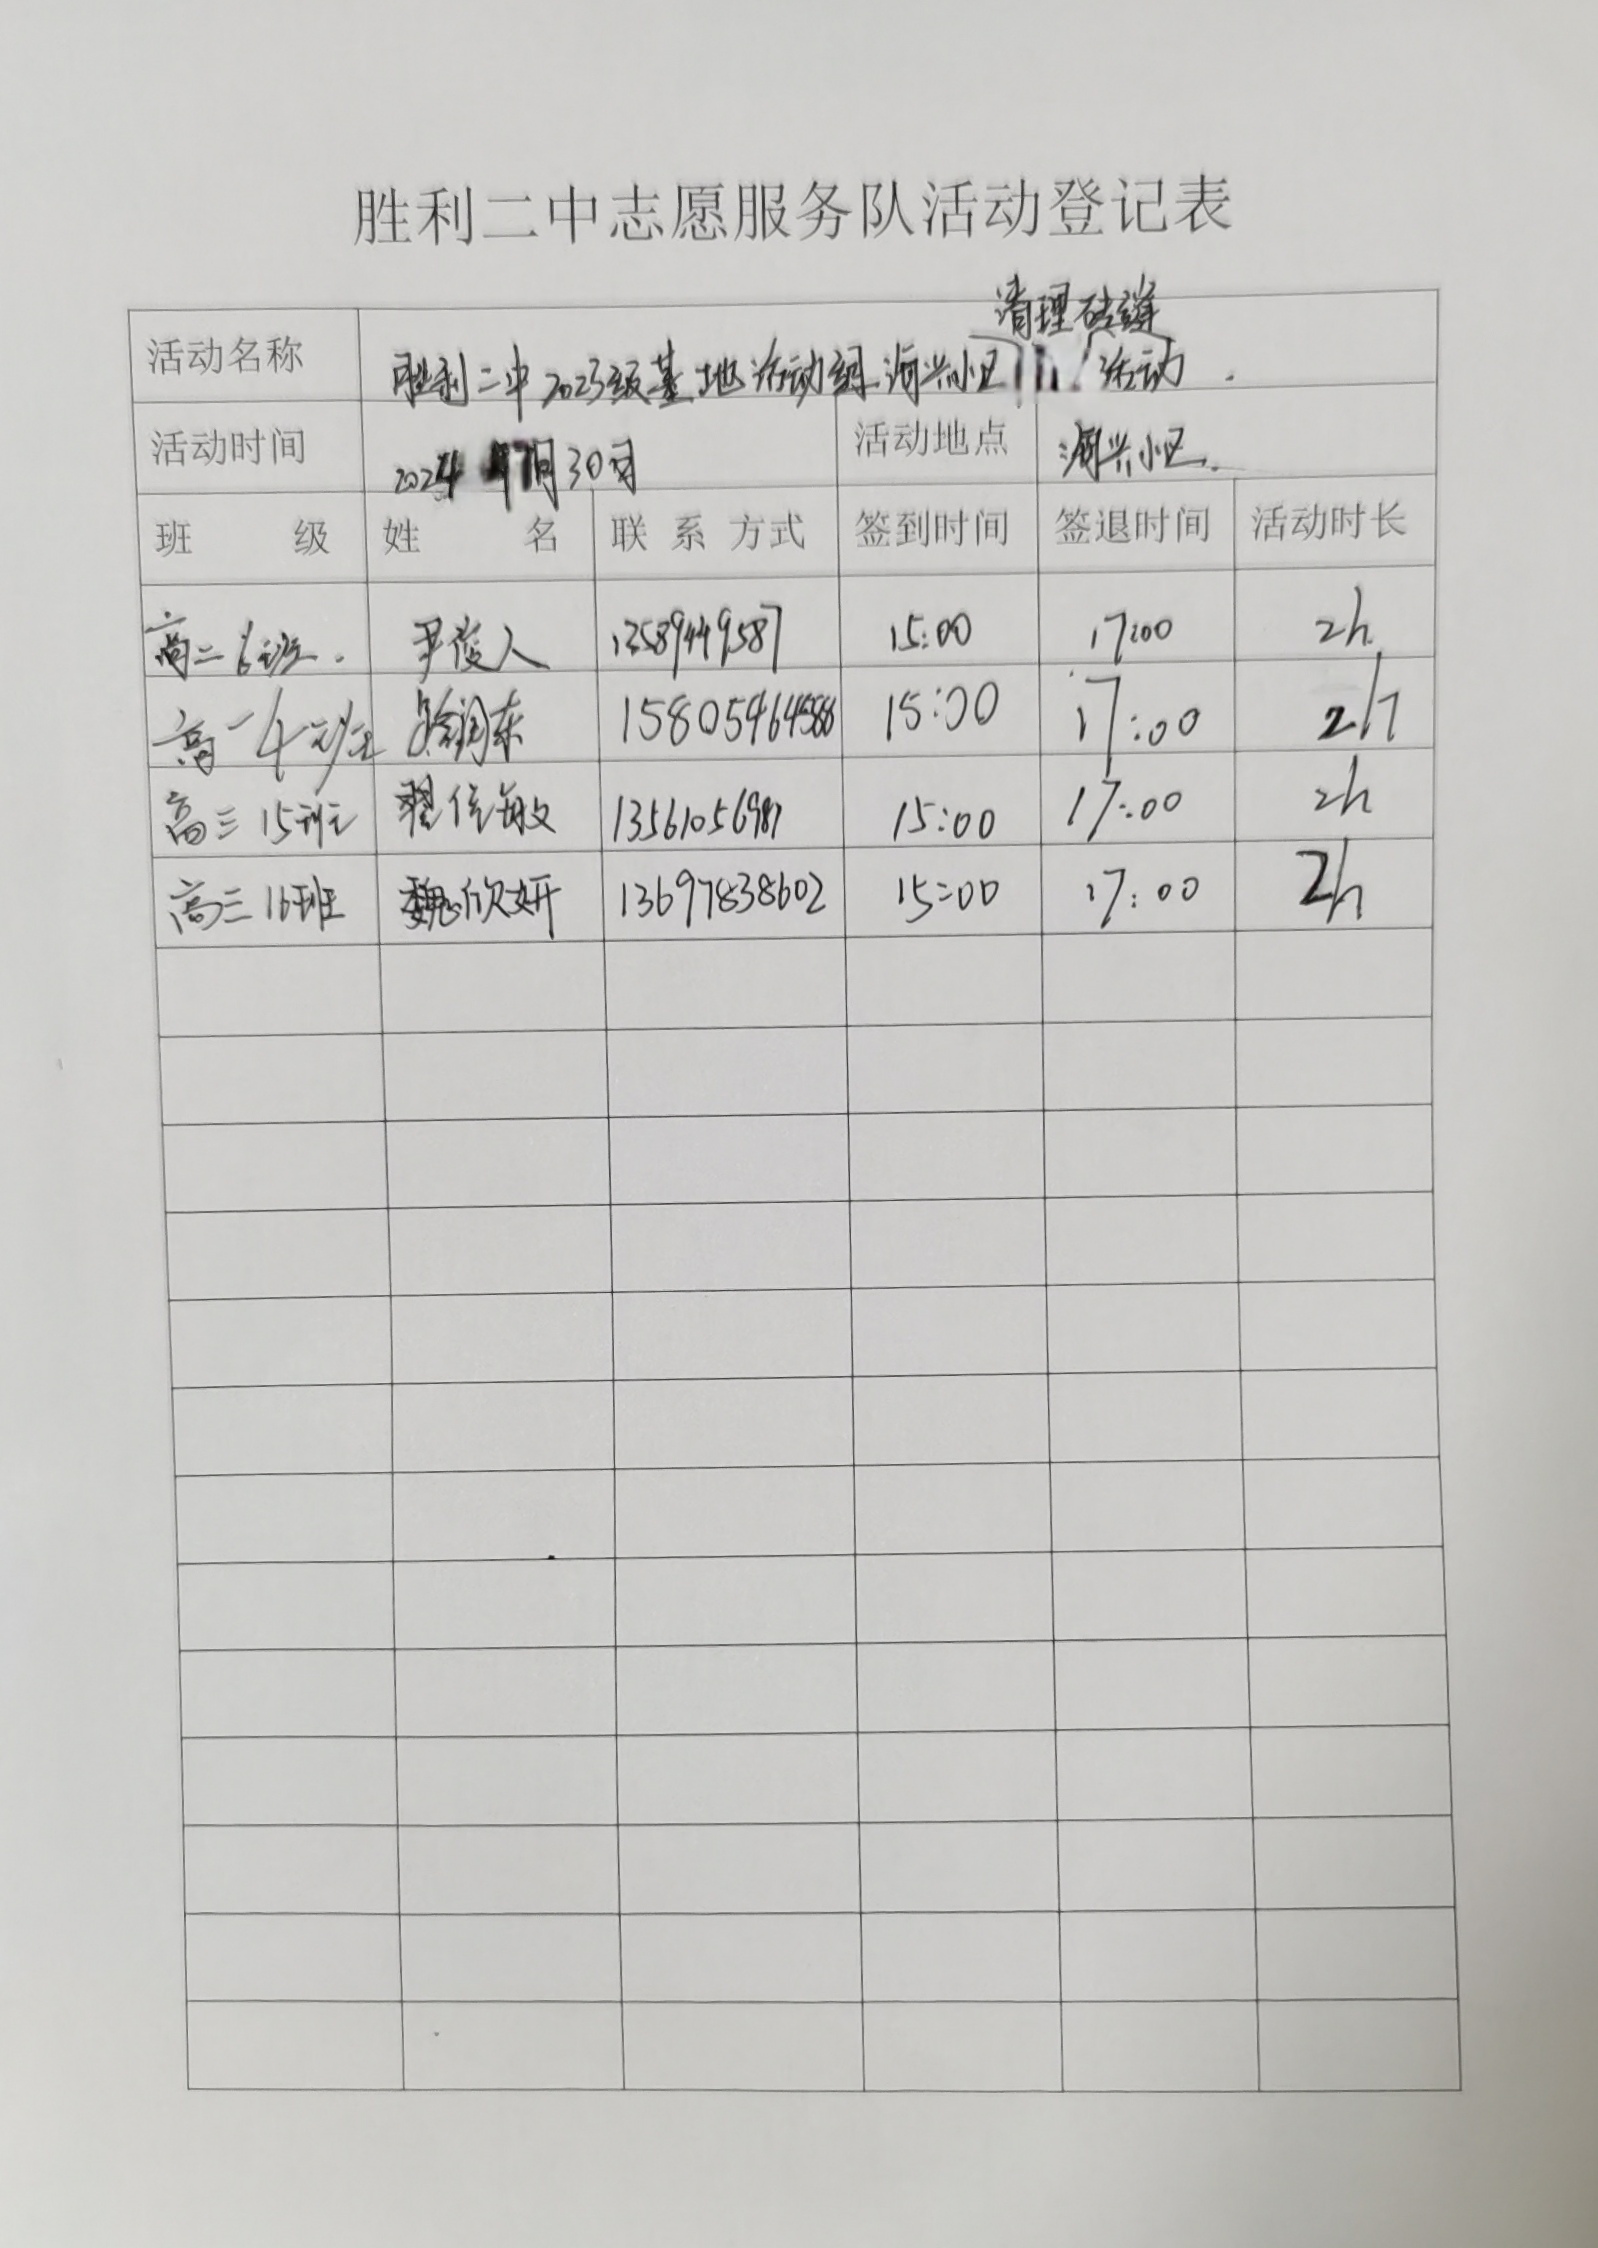 胜利二中志愿服务队活动登记表
清理砖缝
活动名称 胜利二中2023级基地活动组 海兴小区 活动.
活动时间 2024 7月30日 活动地点 海兴小区.
班 级 姓 名 联 系 方式 签到时间 签退时间 活动时长
高二6班. 尹俊人 13589449587 15:00 17:00 2h
高一4班 润东 15:00 17:00 2h
高三15班 翟佳敏 13561056981 15:00 17:00 2h
高三16班 魏欣妍 13697838602 15:00 17:00 2h